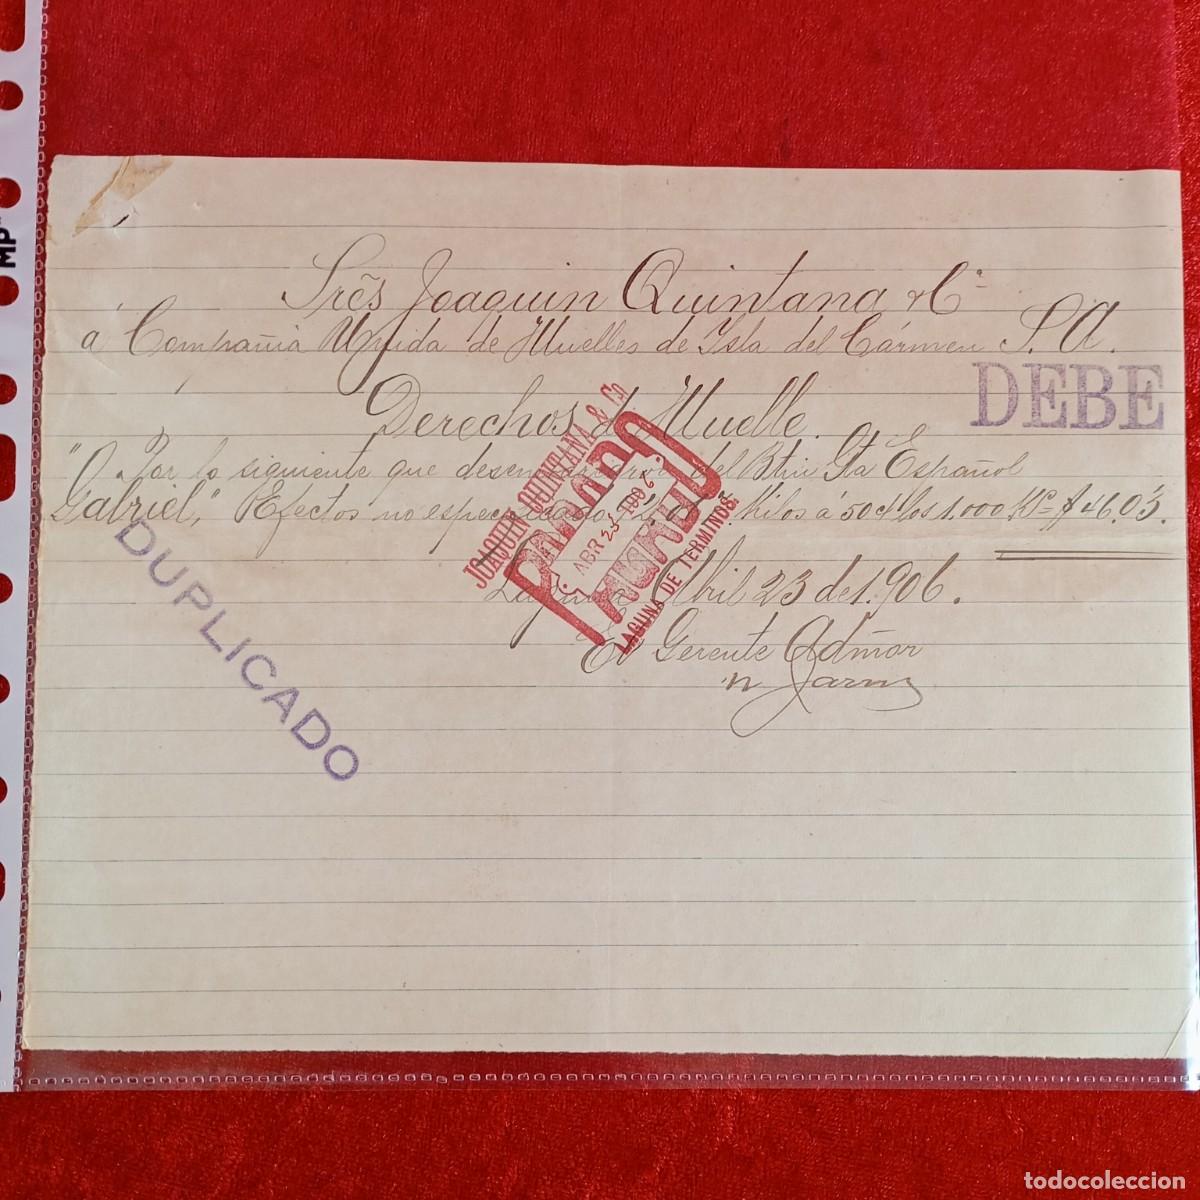 Sres Joaquin Quintana & Cª
á Compañia Unida de Muelles de Isla del Cármen S.A.
DEBE
Derechos de Muelle.
Por lo siguiente que desembarcaron del Español
Gabriel", Efectos no especificados Kilos á 50 los 1.000 Ks $46.03.
Laguna Abril 23 de 1.906.
El Gerente Admor
DUPLICADO
JOAQUIN QUINTANA & Co
PAGADO
ABR 23 1906
LAGUNA DE TERMINOS.
MP
todocoleccion